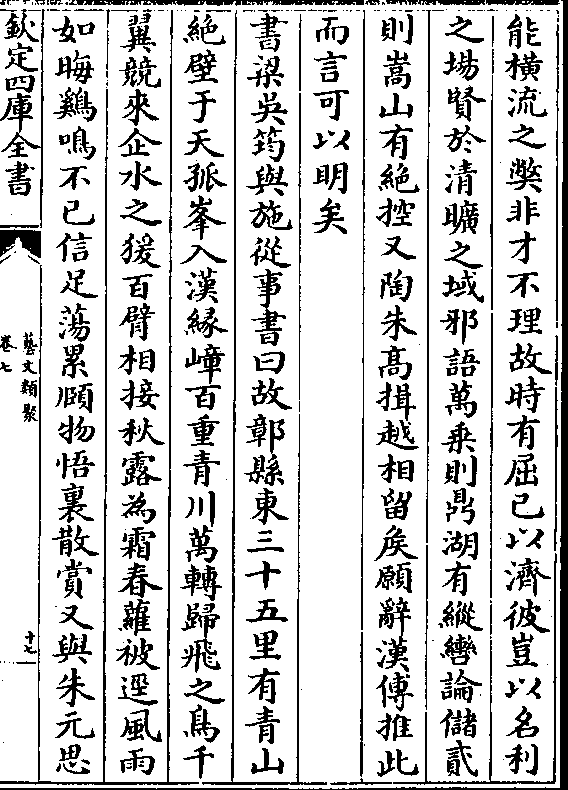 能橫流之弊非才不理故時有屈己以濟彼豈以名利
之場賢於清曠之域邪語萬乗則鼎湖有縱轡論儲貳
則嵩山有絶控又陶朱髙揖越相留侯願辭漢傅推此
而言可以明矣
書梁吳筠與施從事書曰故鄣縣東三十五里有青山
絶壁于天孤峯入漢緣嶂百重青川萬轉歸飛之鳥千
翼競來企水之猨百臂相接秋露為霜春蘿被逕風雨
如晦鷄鳴不已信足蕩累頤物悟裏散賞又與朱元思
欽定四庫全書
藝文類聚
卷七